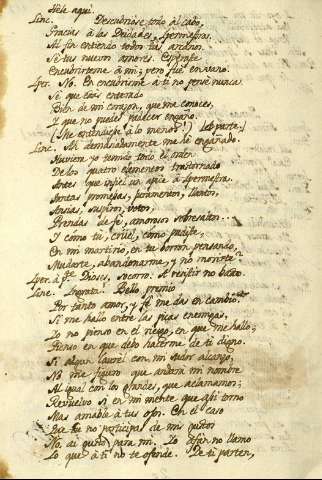 Héle aquí.
Linc. Descubrióse todo al cabo,
Gracias à las Deidades, Ypermestra.
Al fin entiendo todos tus arcanos.
Sé tus nuevos amores.
Encubrírteme à mi; pero fué en vano.
Yper. No. En encubrirme à ti no pensé nunca.
Sé que estás enterado
Bien de mi corazon, que me conoces,
Y que no puedes padecer engaño.
(Me entendiese à lo menos!) (ap.te)
Linc. Ah demasiadamente me he engañado.
Huviera yo temido todo el orden
De los quatro elementos trastornado
Antes que infiel un ápice à Ypermestra.
Tantas promesas, juramentos, llantos,
Ansias, suspiros, votos,
Prendas de fé, amorosos sobresaltos...
Y como tú, cruel, como pudiste,
En mi martirio, en tu borron pensando,
Mudarte, abandonarme, y no morirte?
Yper. à p.te Dioses, socorro. A resistir no basto.
Linc. Ingrata! Bello premio
Por tanto amor, y fé me das en cambio.
Si me hallo entre las picas enemigas,
Yo no pienso en el riesgo, en que me hallo;
Pienso en que debo hacerme de ti digno.
Si algun laurel con mi sudor alcanzo,
No me figuro que andará mi nombre
Al igual con los grandes, que aclamamos;
Revuelvo sí en mi mente que assi torno
Mas amable à tus ojos. En el caso
Que tu no participes de mis gustos
No, di gusto para mi. Yo afan no llamo
Lo que à ti no te ofende. De ti parten,